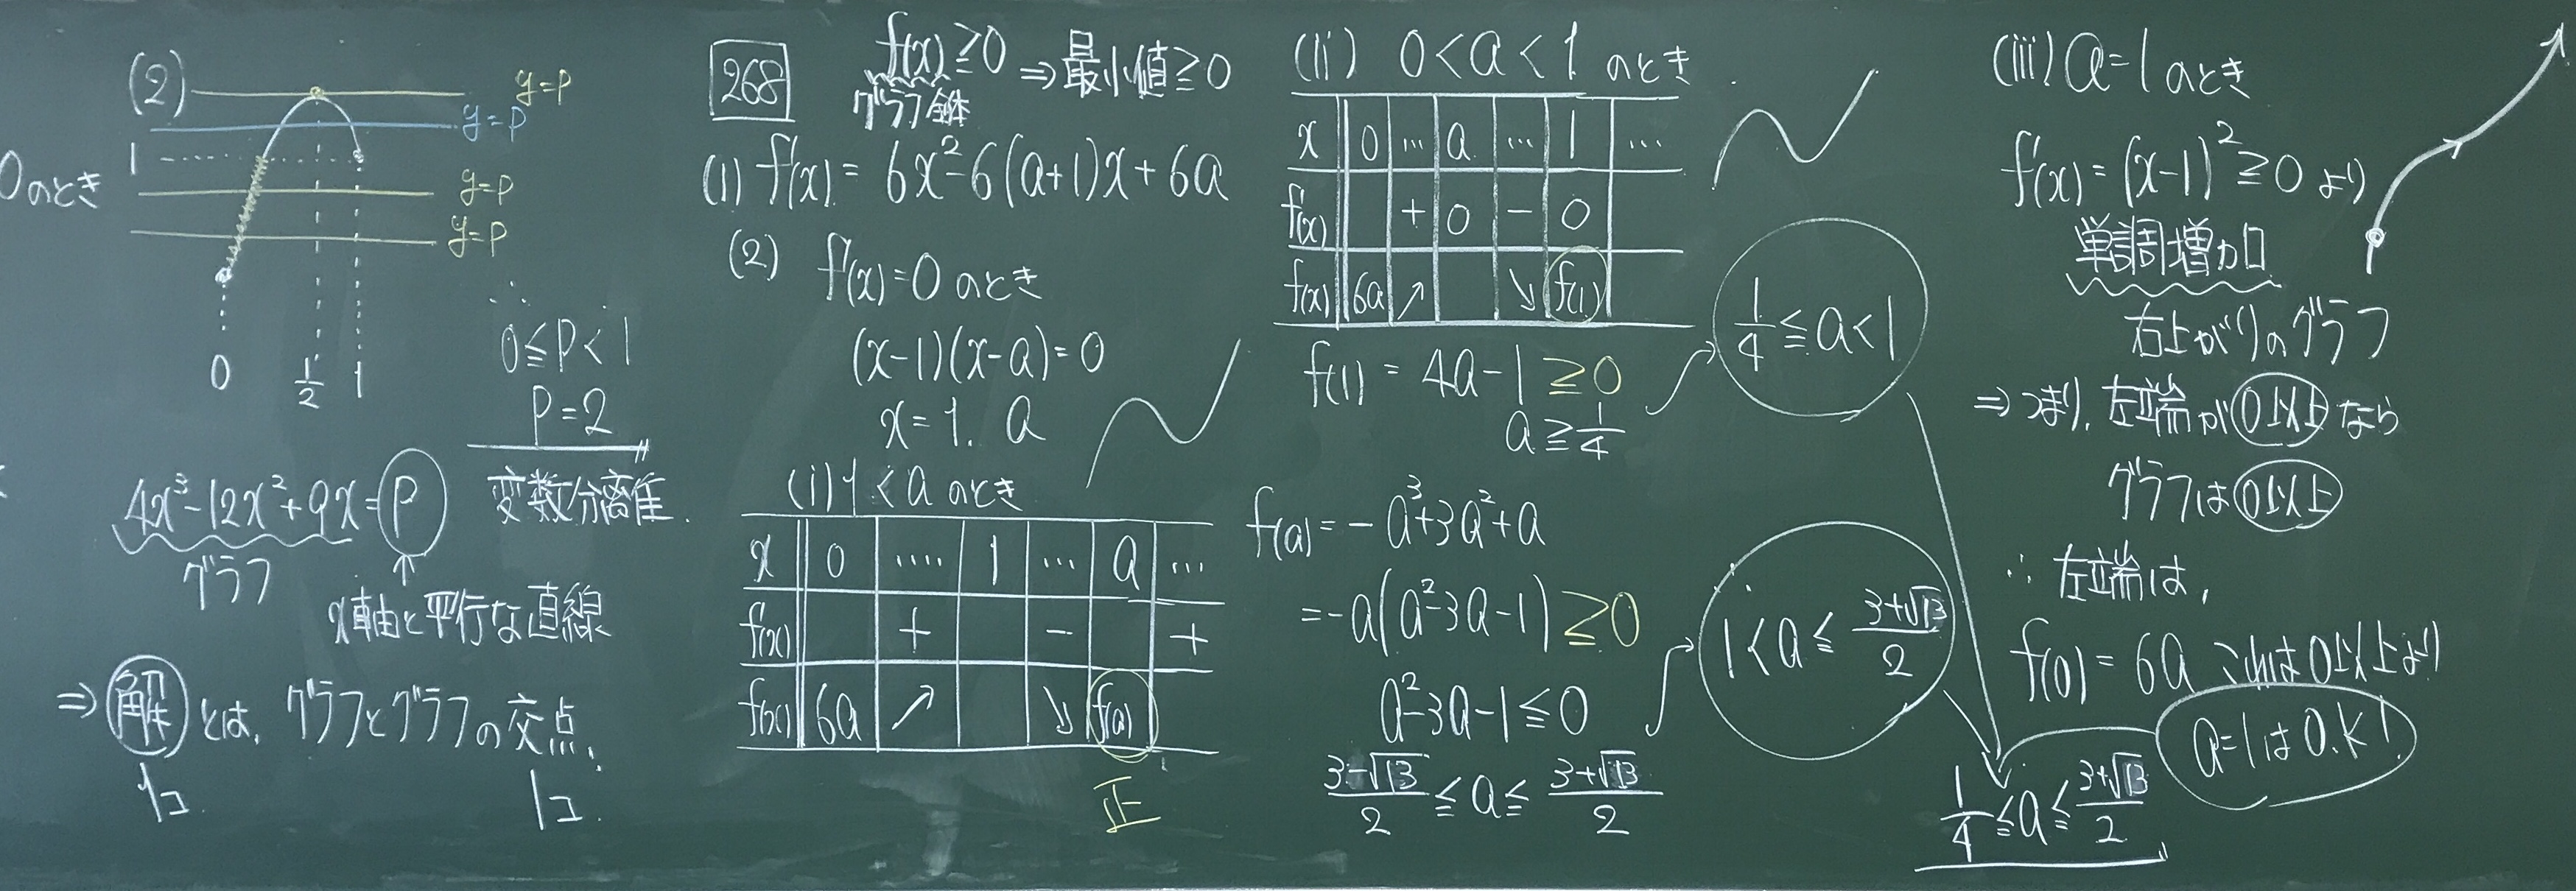 (2)
y=p
y=p
1
y=p
0のとき
y=p
0 1/2 1
∴
0≦p<1
p=2
4x³-12x²+9x=p
変数分離
グラフ
x軸と平行な直線
⇒解とは、グラフとグラフの交点.
1コ 1コ.
268
f(x)≧0 ⇒最小値≧0
グラフ解
(1) f'(x)= 6x²-6(a+1)x+6a
(2) f'(x)=0 のとき
(x-1)(x-a)=0
x=1. a
(i) 1<a のとき
x 0 ..... 1 ... a ...
f'(x) + - +
f(x) 6a ↗ ↘ f(a)
正
(ii) 0<a<1 のとき
x 0 ... a ... 1 ...
f'(x) + 0 - 0
f(x) 6a ↗ ↘ f(1)
f(1) = 4a-1 ≧0
a≧1/4
1/4≦a<1
f(a)=-a³+3a²+a
=-a(a²-3a-1)≧0
a²-3a-1≦0
(3-√13)/2 ≦a≦ (3+√13)/2
1<a≦ (3+√13)/2
(iii) a=1 のとき
f'(x)=(x-1)²≧0 より
単調増加
右上がりのグラフ
⇒つまり、左端が0以上なら
グラフは0以上
∴左端は、
f(0)= 6a これは0以上より
a=1はO.K!
1/4≦a≦(3+√13)/2